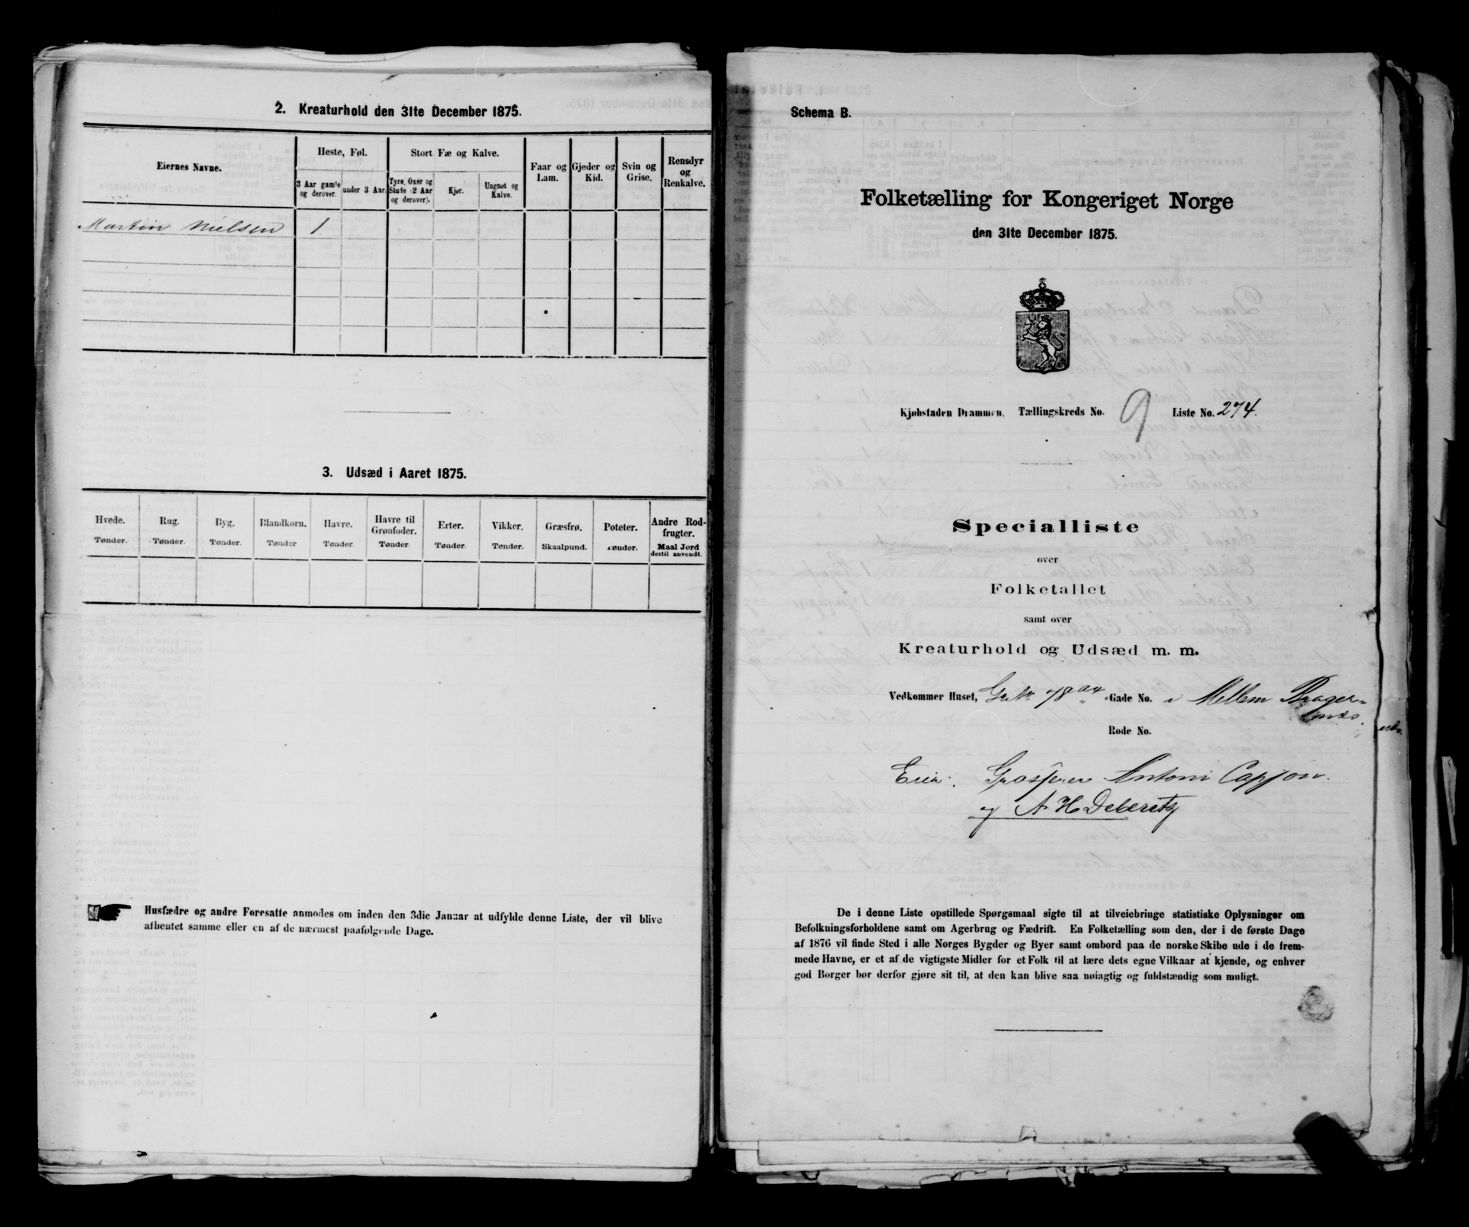 2. Kreaturhold den 31te December 1875.
Eiernes Navne.
Heste, Føl.
Stort Fæ og Kalve.
Faar og Lam.
Gjeder og Kid.
Svin og Grise.
Rensdyr og Renkalve.
3 Aar gamle og derover.
under 3 Aar.
Tyre, Oxer og Stute (2 Aar og derover).
Kjør.
Ungnøt og Kalve.
Martin Nielsen 1
3. Udsæd i Aaret 1875.
Hvede. Tønder.
Rug. Tønder.
Byg. Tønder.
Blandkorn. Tønder
Havre. Tønder.
Havre til Grønfoder. Tønder
Erter. Tønder.
Vikker. Tønder.
Græsfrø. Skaalpund.
Poteter. Tønder.
Andre Rodfrugter. Maal Jord dertil anvendt.
Husfædre og andre Foresatte anmodes om inden den 3die Januar at udfylde denne Liste, der vil blive
afhentet samme eller en af de nærmest paafølgende Dage.
Schema B.
Folketælling for Kongeriget Norge
den 31te December 1875.
Kjøbstaden Drammen, Tællingskreds No. 9 Liste No. 274.
Specialliste
over
Folketallet
samt over
Kreaturhold og Udsæd m. m.
Vedkommer Huset, 78 Gade No. i Mellem Brager-
næs.
Rode No.
Eier. Antoni Cappon.
og A H Deberitz
De i denne Liste opstillede Spørgsmaal sigte til at tilveiebringe statistiske Oplysninger om
Befolkningsforholdene samt om Agerbrug og Fædrift. En Folketælling som den, der i de første Dage
af 1876 vil finde Sted i alle Norges Bygder og Byer samt ombord paa de norske Skibe ude i de frem-
mede Havne, er et af de vigtigste Midler for et Folk til at lære dets egne Vilkaar at kjende, og enhver
god Borger bør derfor gjøre sit til, at den kan blive saa nøiagtig og fuldstændig som muligt.